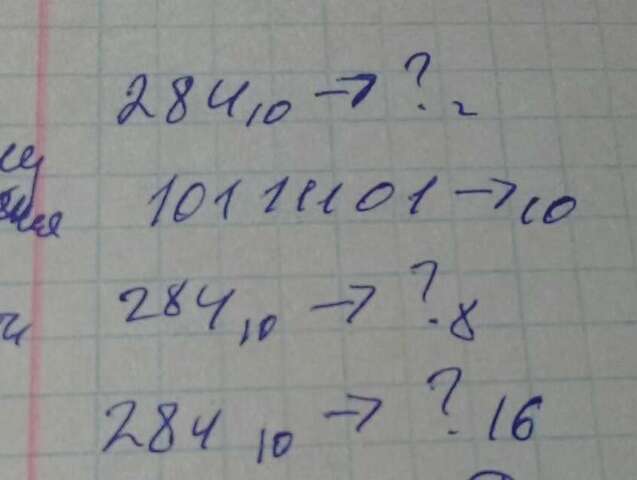 284₁₀ → ?₂
101111101 → ₁₀
284₁₀ → ?₈
284₁₀ → ?₁₆